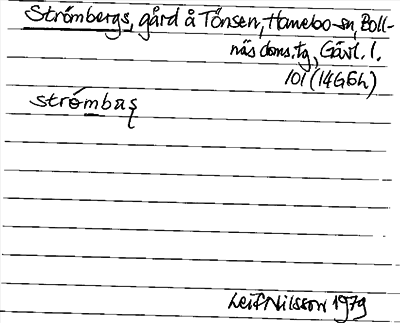 Strömbergs, gård å Tönsen, Hanebo sn, Boll-
näs doms.tg, Gävl. l.
101 (14G6h)
strömbas
Leif Nilsson 1979